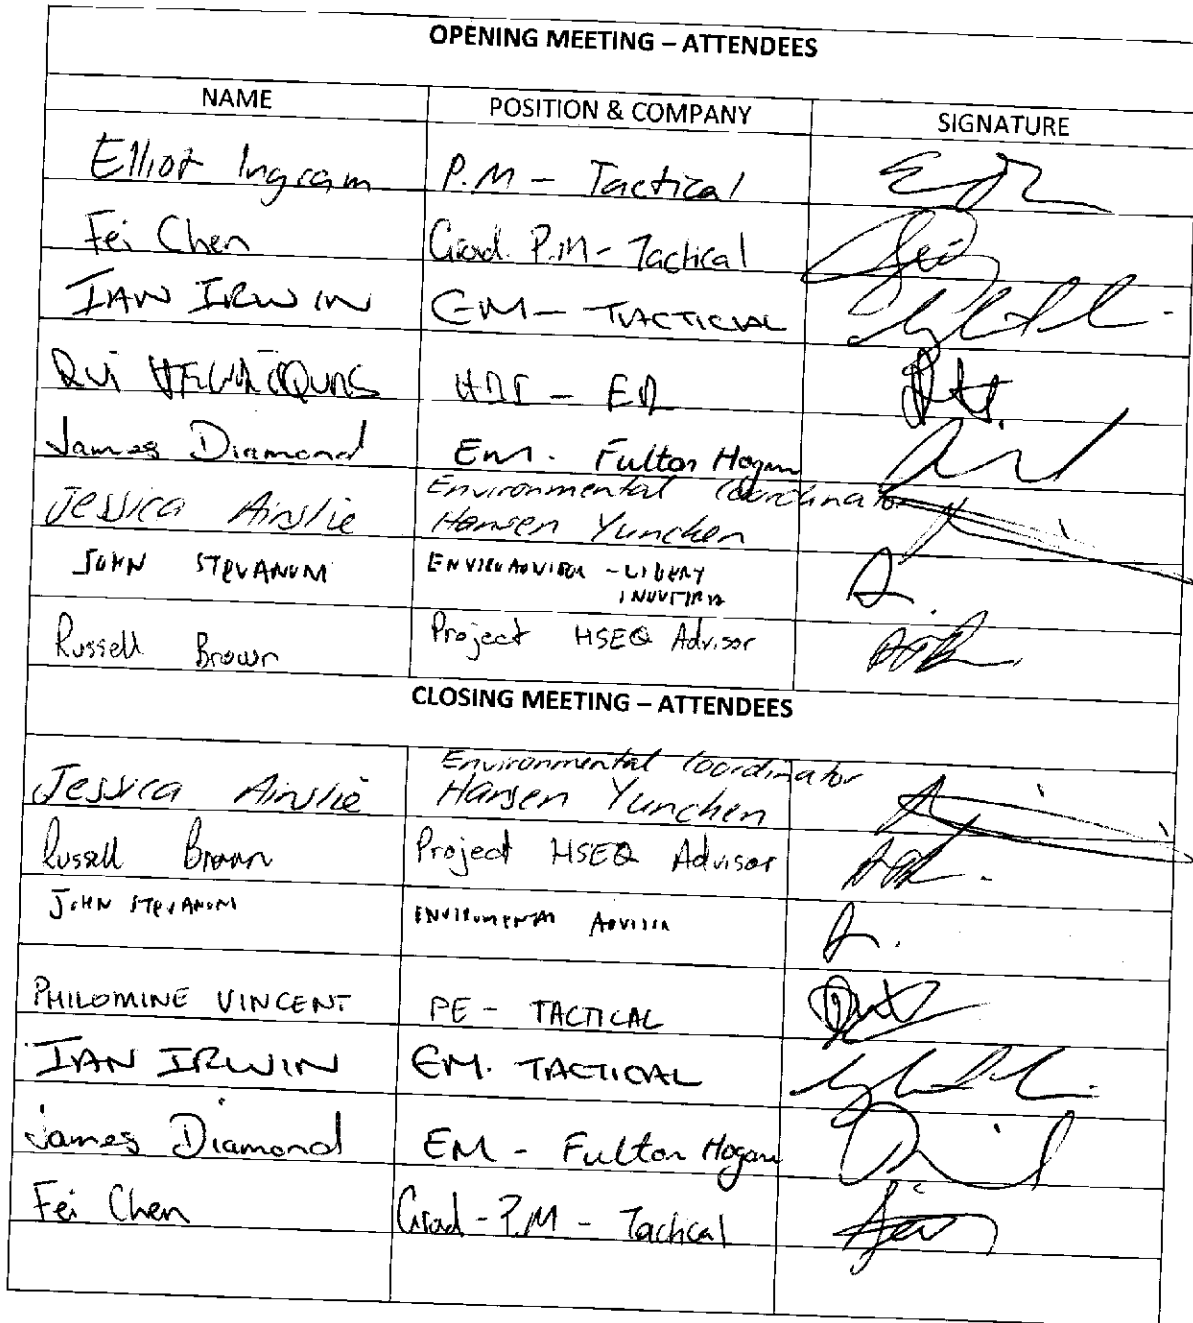 OPENING MEETING – ATTENDEES
NAME POSITION & COMPANY SIGNATURE
Elliot Ingram P.M - Tactical
Fei Chen Grad. P.M - Tactical
IAN IRWIN EM - TACTICAL
RUI
James Diamond EM. Fulton Hogan
Environmental Coordinator
Jessica Ainslie Hansen Yuncken
JOHN STEVANONI ENVIRO ADVISOR -
Russell Brown Project HSEQ Advisor
CLOSING MEETING – ATTENDEES
Environmental Coordinator
Jessica Ainslie Hansen Yuncken
Russell Brown Project HSEQ Advisor
JOHN STEVANONI ENVIROMENTAL ADVISOR
PHILOMINE VINCENT PE - TACTICAL
IAN IRWIN EM. TACTICAL
James Diamond EM - Fulton Hogan
Fei Chen Grad - P.M - Tactical